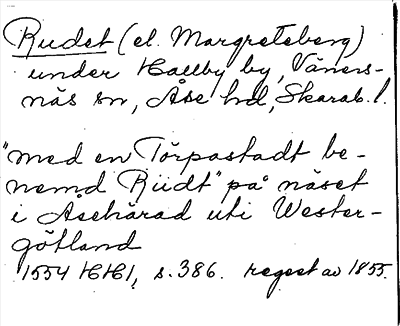 Rudet (el. Margreteberg)
under Hallby by, Väners-
näs sn, Åse hd, Skarab. l.
"med en Torpastadt be-
nemd Rüdt" på näset
i Åsehärad uti Wester-
götland
1554 HH1, s. 386. regest av 1855.